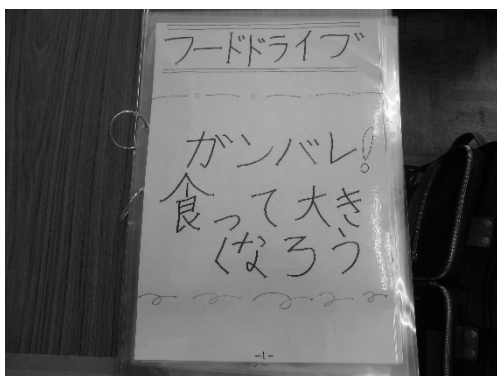 フードドライブ
ガンバレ!
食って大き
くなろう
-1-